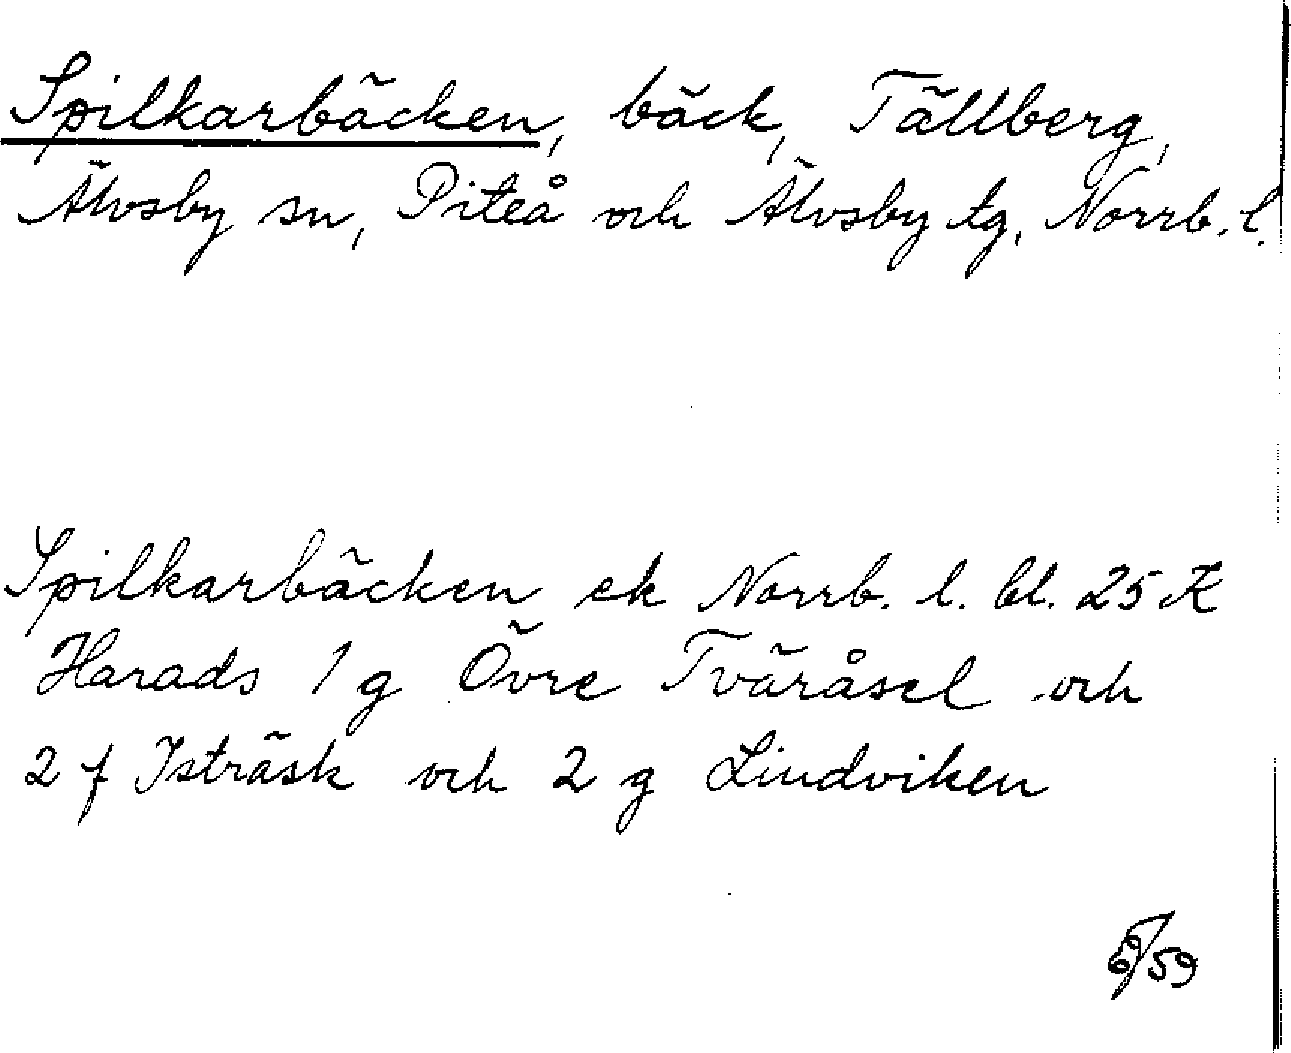 Spilkarbäcken, bäck, Tällberg,
Älvsby sn, Piteå och Älvsby tg, Norrb. l.
Spilkarbäcken ek Norrb. l. bl. 25 K
Harads 1 g Övre Tväråsel och
2 f Isträsk och 2 g Lindviken